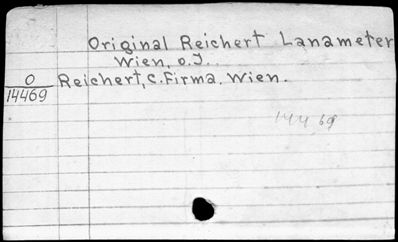 Original Reichert Lanameter
Wien, o.J..
O Reichert, C. Firma. Wien.
14469
144,69